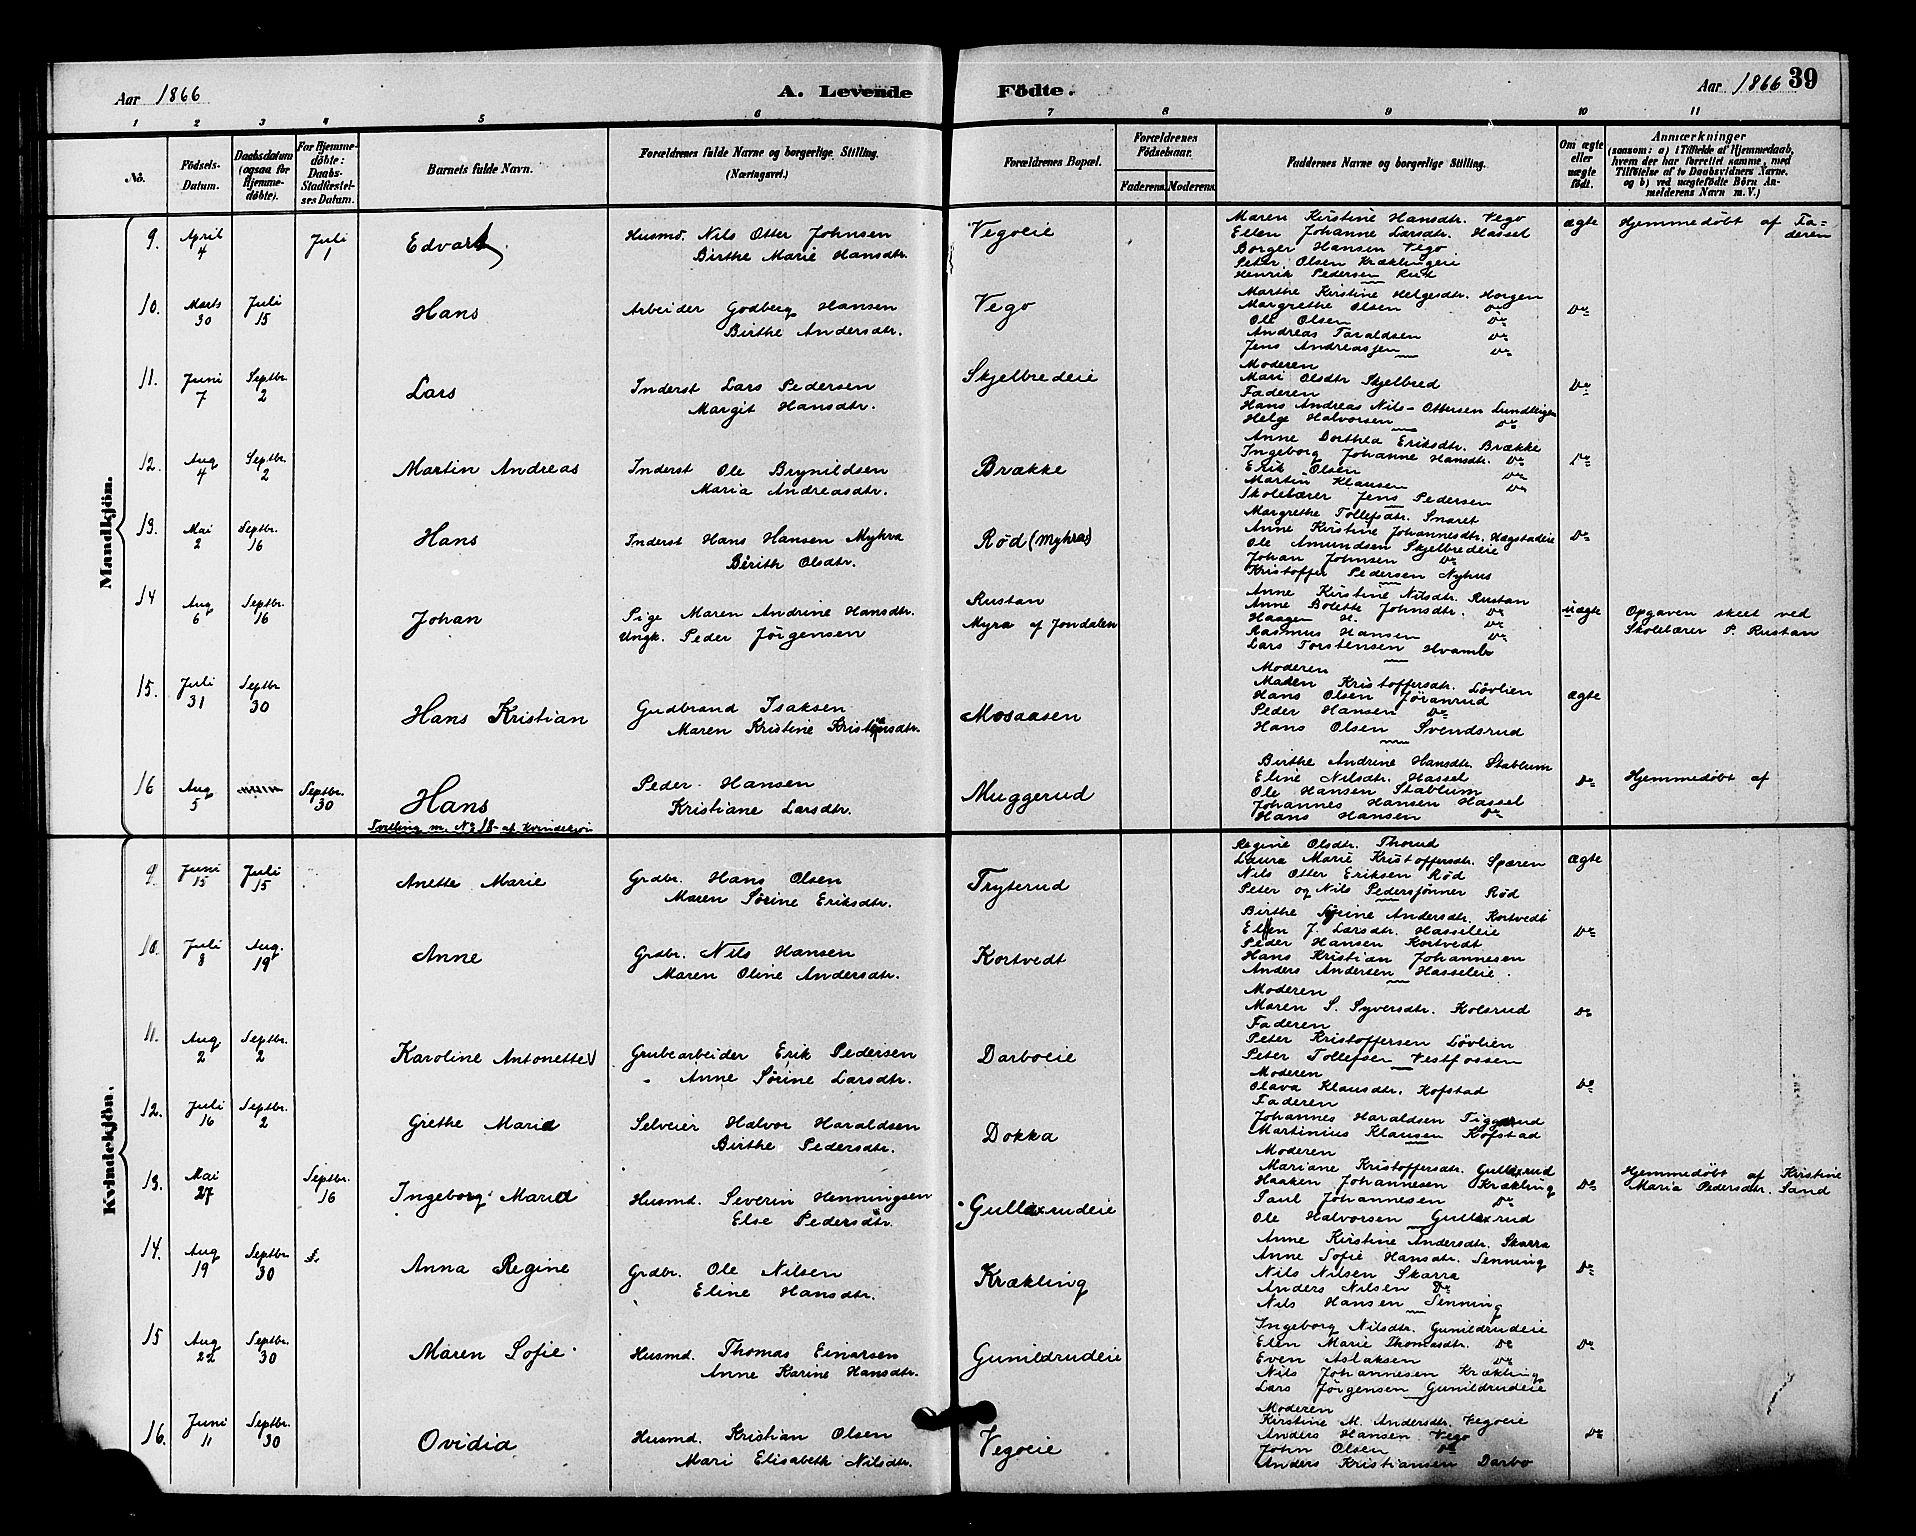 Aar 1866
A. Levende
Födte.
Aar 1866 39
1 2 3 4 5 6 7 8 9 10 11
No.
Födsels-Datum.
Daabsdatum (ogsaa for Hjemme-döbte).
For Hjemme-döbte: Daabs-Stadfæstel-ses Datum.
Barnets fulde Navn.
Forældrenes fulde Navne og borgerlige Stilling. (Næringsvei.)
Forældrenes Bopæl.
Forældrenes Födselsaar.
Faderens. Moderens.
Faddernes Navne og borgerlige Stilling.
Om ægte eller uægte födt.
Anmærkninger
(saasom: a) i Tilfælde af Hjemmedaab, hvem der har forrettet samme, med Tilföielse af to Daabsvidners Navne, og b) ved uægtefödte Börn An-melderens Navn m. V.)
Mandkjön.
9. April 4 Juli 1 Edvart
Husmd. Nils Otter Johnsen
Birthe Marie Hansdtr.
Vegoeie
Maren Kirstine Hansdtr. Vego
Ellen Johanne Larsdtr. Hassel
Borger Hansen Vego
Peter Olsen Kræklingeie
Henrik Pedersen Rud
ægte
Hjemmedøbt af Fa-
deren
10. Marts 30 Juli 15 Hans
Arbeider Godberg Hansen
Birthe Andersdtr.
Vego
Marthe Kirstine Helgesdtr. Horgen
Margrethe Olsen Do
Ole Olsen Do
Andreas Taraldsen Do
Jens Andreassen Do
Do
11. Juni 7 Septbr. 2 Lars
Inderst Lars Pedersen
Margit Hansdtr.
Skjelbredeie
Moderen
Mari Olsdtr Skjelbred
Faderen
Hans Andreas Nils-Ottersen Lundteigen
Helge Halvorsen Do
Do
12. Aug 4 Septbr. 2 Martin Andreas
Inderst Ole Brynildsen
Maria Andreasdtr.
Brække
Anne Dorthea Eriksdtr. Brække
Ingeborg Johanne Hansdtr. Do
Erik Olsen Do
Martin Klausen Do
Skolelærer Jens Pedersen
Do
13. Mai 2 Septbr. 16 Hans
Inderst Hans Hansen Myhra
Berith Olsdtr.
Rød (Myhras)
Margrethe Tollefsdtr. Snaret
Anne Kirstine Johannesdtr. Hagstadeie
Ole Amundsen Skjelbredeie
Johan Johnsen Do
Kristoffer Pedersen Nyhus
Do
14 Aug 6 Septbr. 16 Johan
Pige Maren Andrine Hansdtr.
Ungk. Peder Jörgensen
Rustan
Myra af Jondalen
Anne Kirstine Nilsdtr. Rustan
Anne Bolette Johnsdtr. Do
Haagen H. Do
Rasmus Hansen Do
Lars Torstensen Hvambe
uægte
Opgaven skeet ved
Skolelærer P. Rustan
15. Juli 31 Septbr 30 Hans Kristian
Gudbrand Isaksen
Maren Kristine Kristensdtr.
Mosaasen
Moderen
Maren Kristoffersdtr. Løvlien
Hans Olsen Jøranrud
Peder Hansen Do
Hans Olsen Svendsrud
ægte
16 Aug 5 Septbr. 30 Hans
Tvilling m. No 18 af Kvindekjön
Peder Hansen
Kristiane Larsdtr.
Muggerud
Birthe Andrine Hansdtr. Stablum
Eline Nilsdtr. Hassel
Ole Hansen Stablum
Johannes Hansen Hassel
Hans Hansen Do
Do
Hjemmedøbt af
Kvindekjön.
9. Juni 15 Juli 15 Anette Marie
Grdbr. Hans Olsen
Maren Sörine Eriksdtr.
Tryterud
Regine Olsdtr. Thorud
Laura Marie Kristoffersdtr. Spæren
Nils Otter Eriksen Rød
Peter og Nils Pedersønner Rød
ægte
10. Juli 8 Aug. 19 Anne
Grdbr. Nils Hansen
Maren Oline Andersdtr.
Kortvedt
Birthe Andersdtr. Kortvedt
Ellen J. Larsdtr. Hasseleie
Peder Hansen Kortvedt
Hans Kristian Johannesen
Anders Andersen Hasseleie.
Do
11. Aug 2 Septbr. 2 Karoline Antonette
Grubearbeider Erik Pedersen
Anne Sörine Larsdtr.
Darboeie
Moderen
Maren S. Syversdtr. Kolsrud
Faderen
Peter Kristoffersen Løvlien
Peter Tollefsen Vestfossen
Do
12. Juli 16 Septbr. 2 Grethe Maria
Selveier Halvor Haraldsen
Birthe Pedersdtr.
Dokka
Moderen
Olava Klausdtr. Kofstad
Faderen
Johannes Haraldsen Tiggerud
Martinius Klausen Kofstad
Do
13. Mai 27 Septbr. 16 Ingeborg Maria
Husmd. Severin Henningsen
Else Pedersdtr.
Gullaxrudeie
Moderen
Mariane Kristoffersdtr. Gullaxrud
Haaken Johannesen Krækling
Paul Johannesen Do
Ole Halvorsen Gullaxrud
Do
Hjemmedøbt af Kristine
Maria Pedersdtr. Sand
14. Aug 19 Septbr. 30 Anna Regine
Grdbr. Ole Nilsen
Eline Hansdtr.
Krækling
Anne Kirstine Andersdtr. Skarra
Anne Sofie Hansdtr. Senning
Nils Nilsen Skarra
Anders Nilsen Do
Nils Hansen Senning
Do
15 Aug 22 Septbr. 30 Maren Sofie
Husmd. Thomas Einarsen
Anne Karine Hansdtr.
Gunildrudeie
Ingeborg Nilsdtr. Gunildrudeie
Elen Marie Thomasdtr. Do
Even Aslaksen Do
Nils Johannesen Krækling
Lars Jørgensen Gunildrudeie
Do
16. Juni 11 Septbr. 30 Ovidia
Husmd. Kristian Olsen
Mari Elisabeth Nilsdtr.
Vegoeie
Moderen
Kirstine M. Andersdtr. Vegoeie
Anders Hansen Vego
John Olsen Do
Anders Kristiansen Darbo
Do